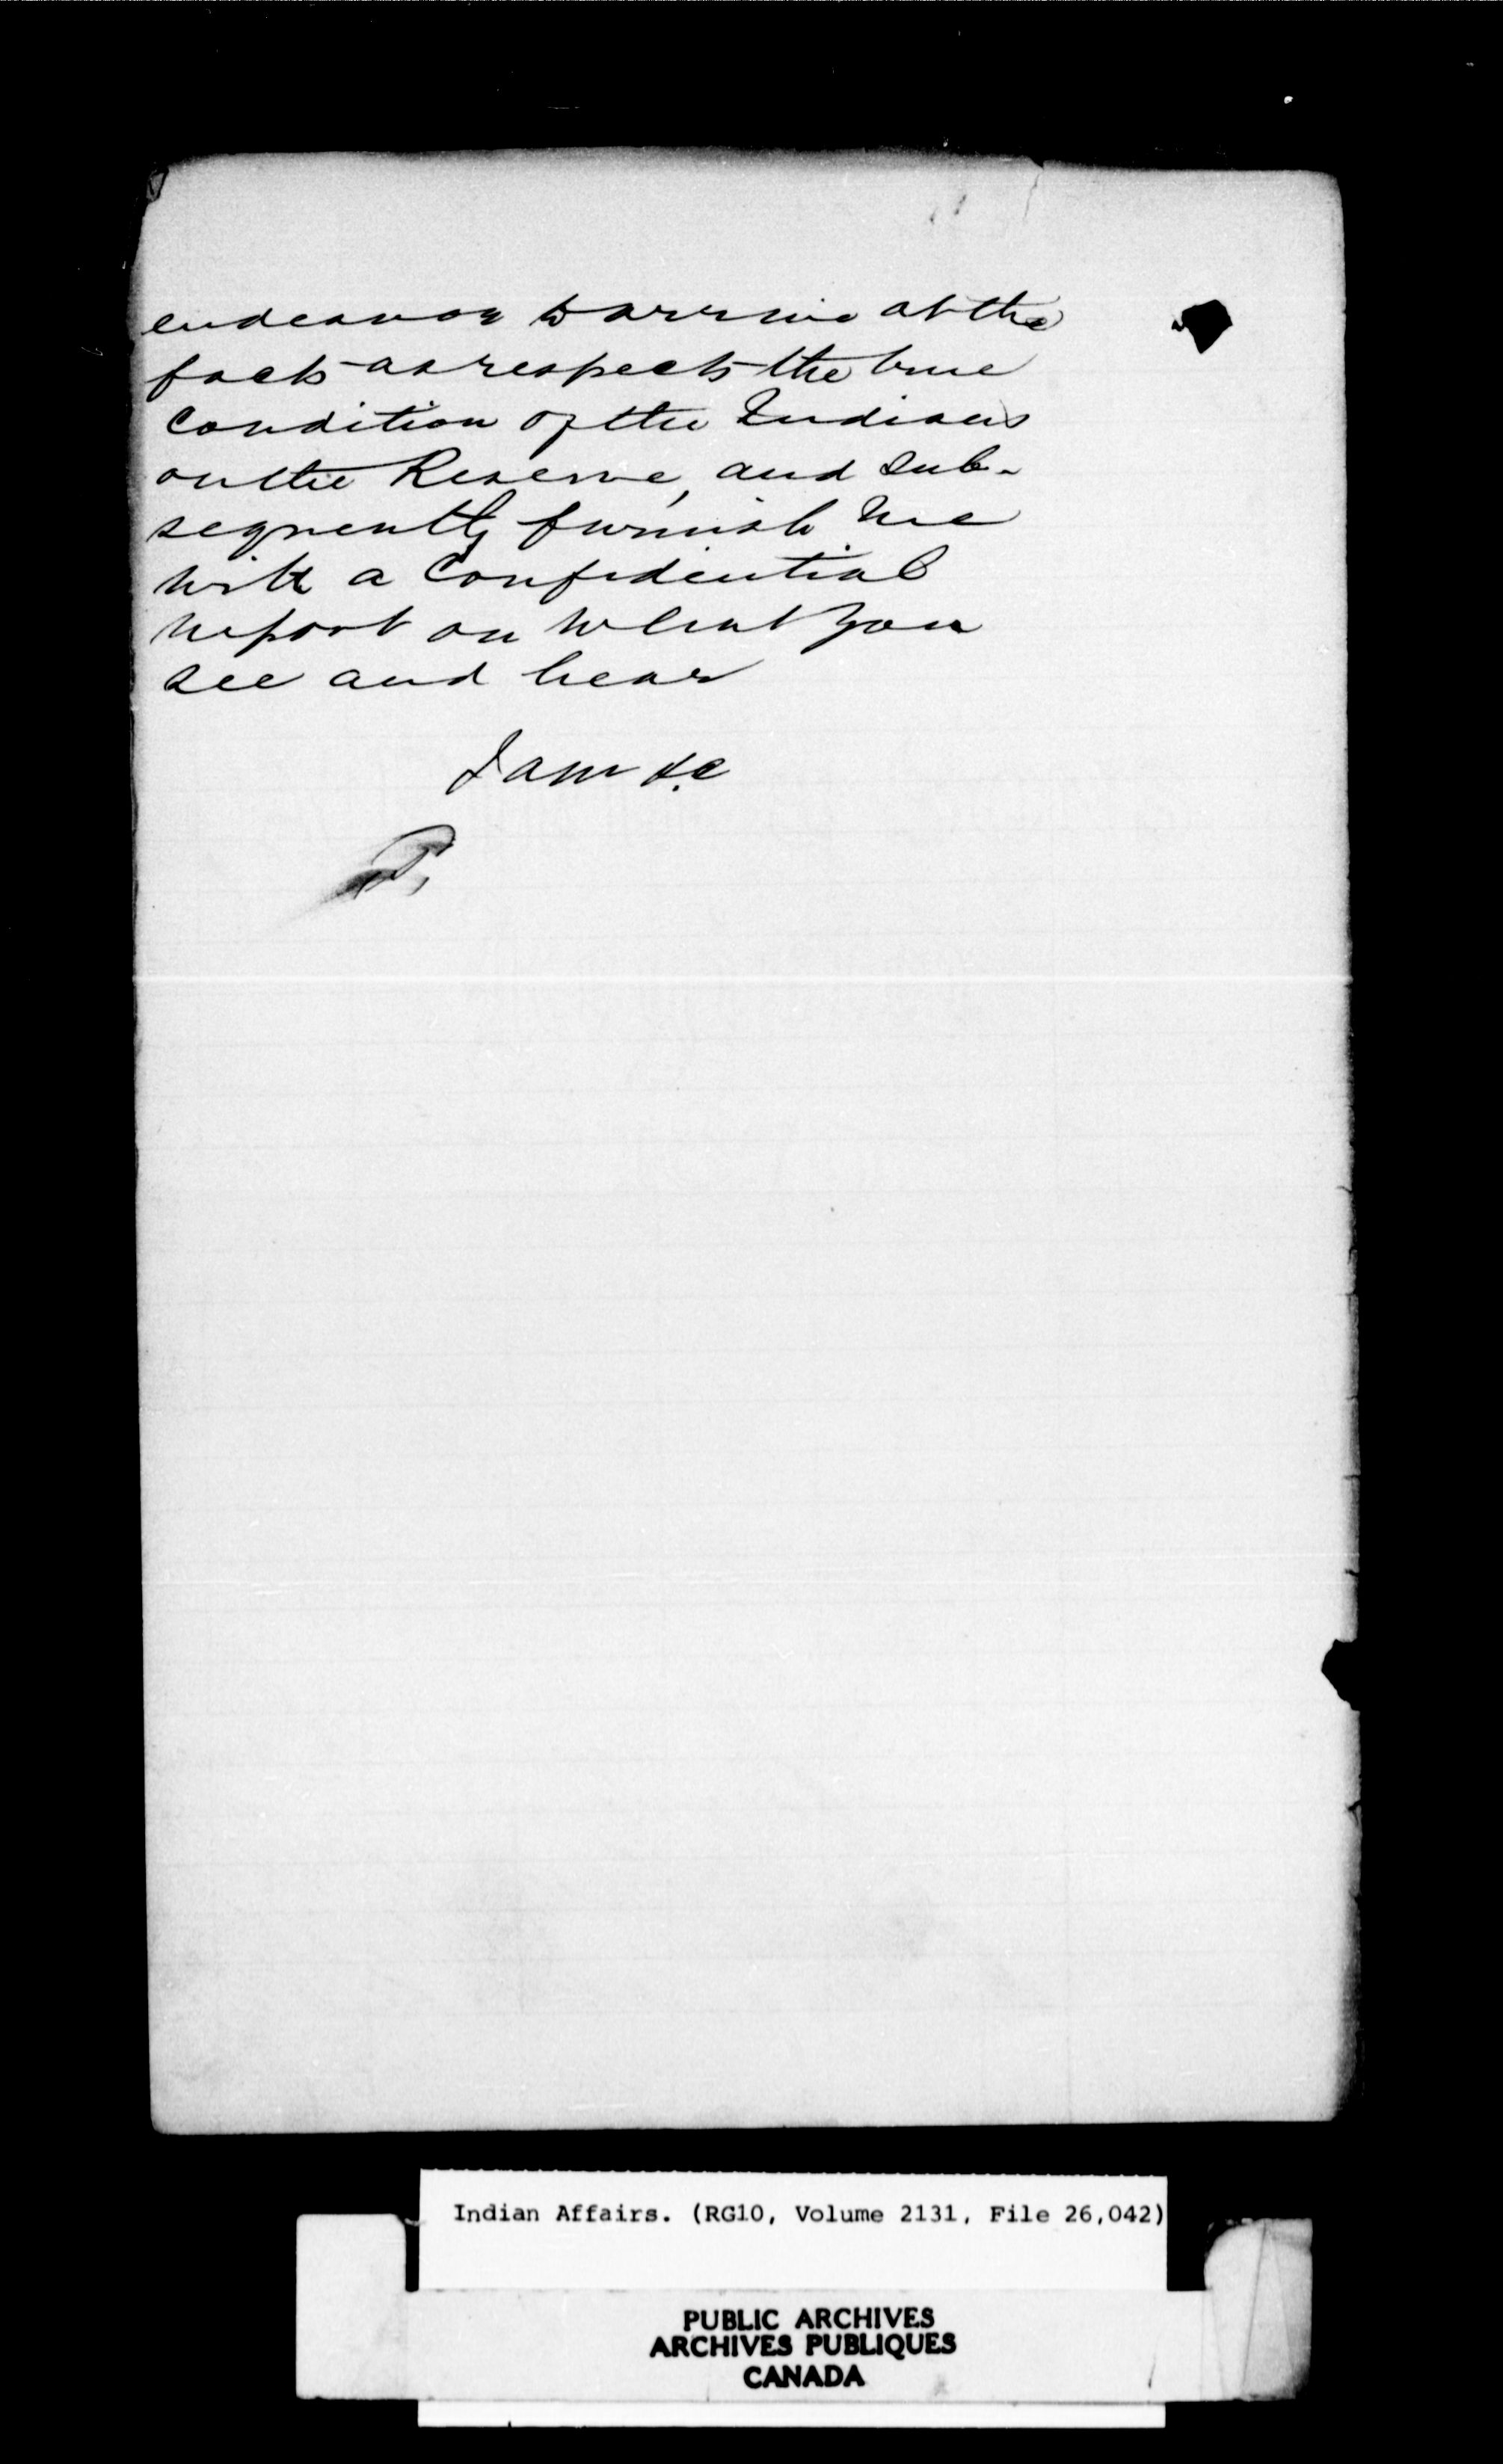 endeavor to arrive at the
facts as respects the true
Condition of the Indians
on the Reserve, and sub-
sequently furnish me
with a Confidential
report on what you
see and hear
I am &c
Indian Affairs. (RG10, Volume 2131, File 26,042)
PUBLIC ARCHIVES
ARCHIVES PUBLIQUES
CANADA